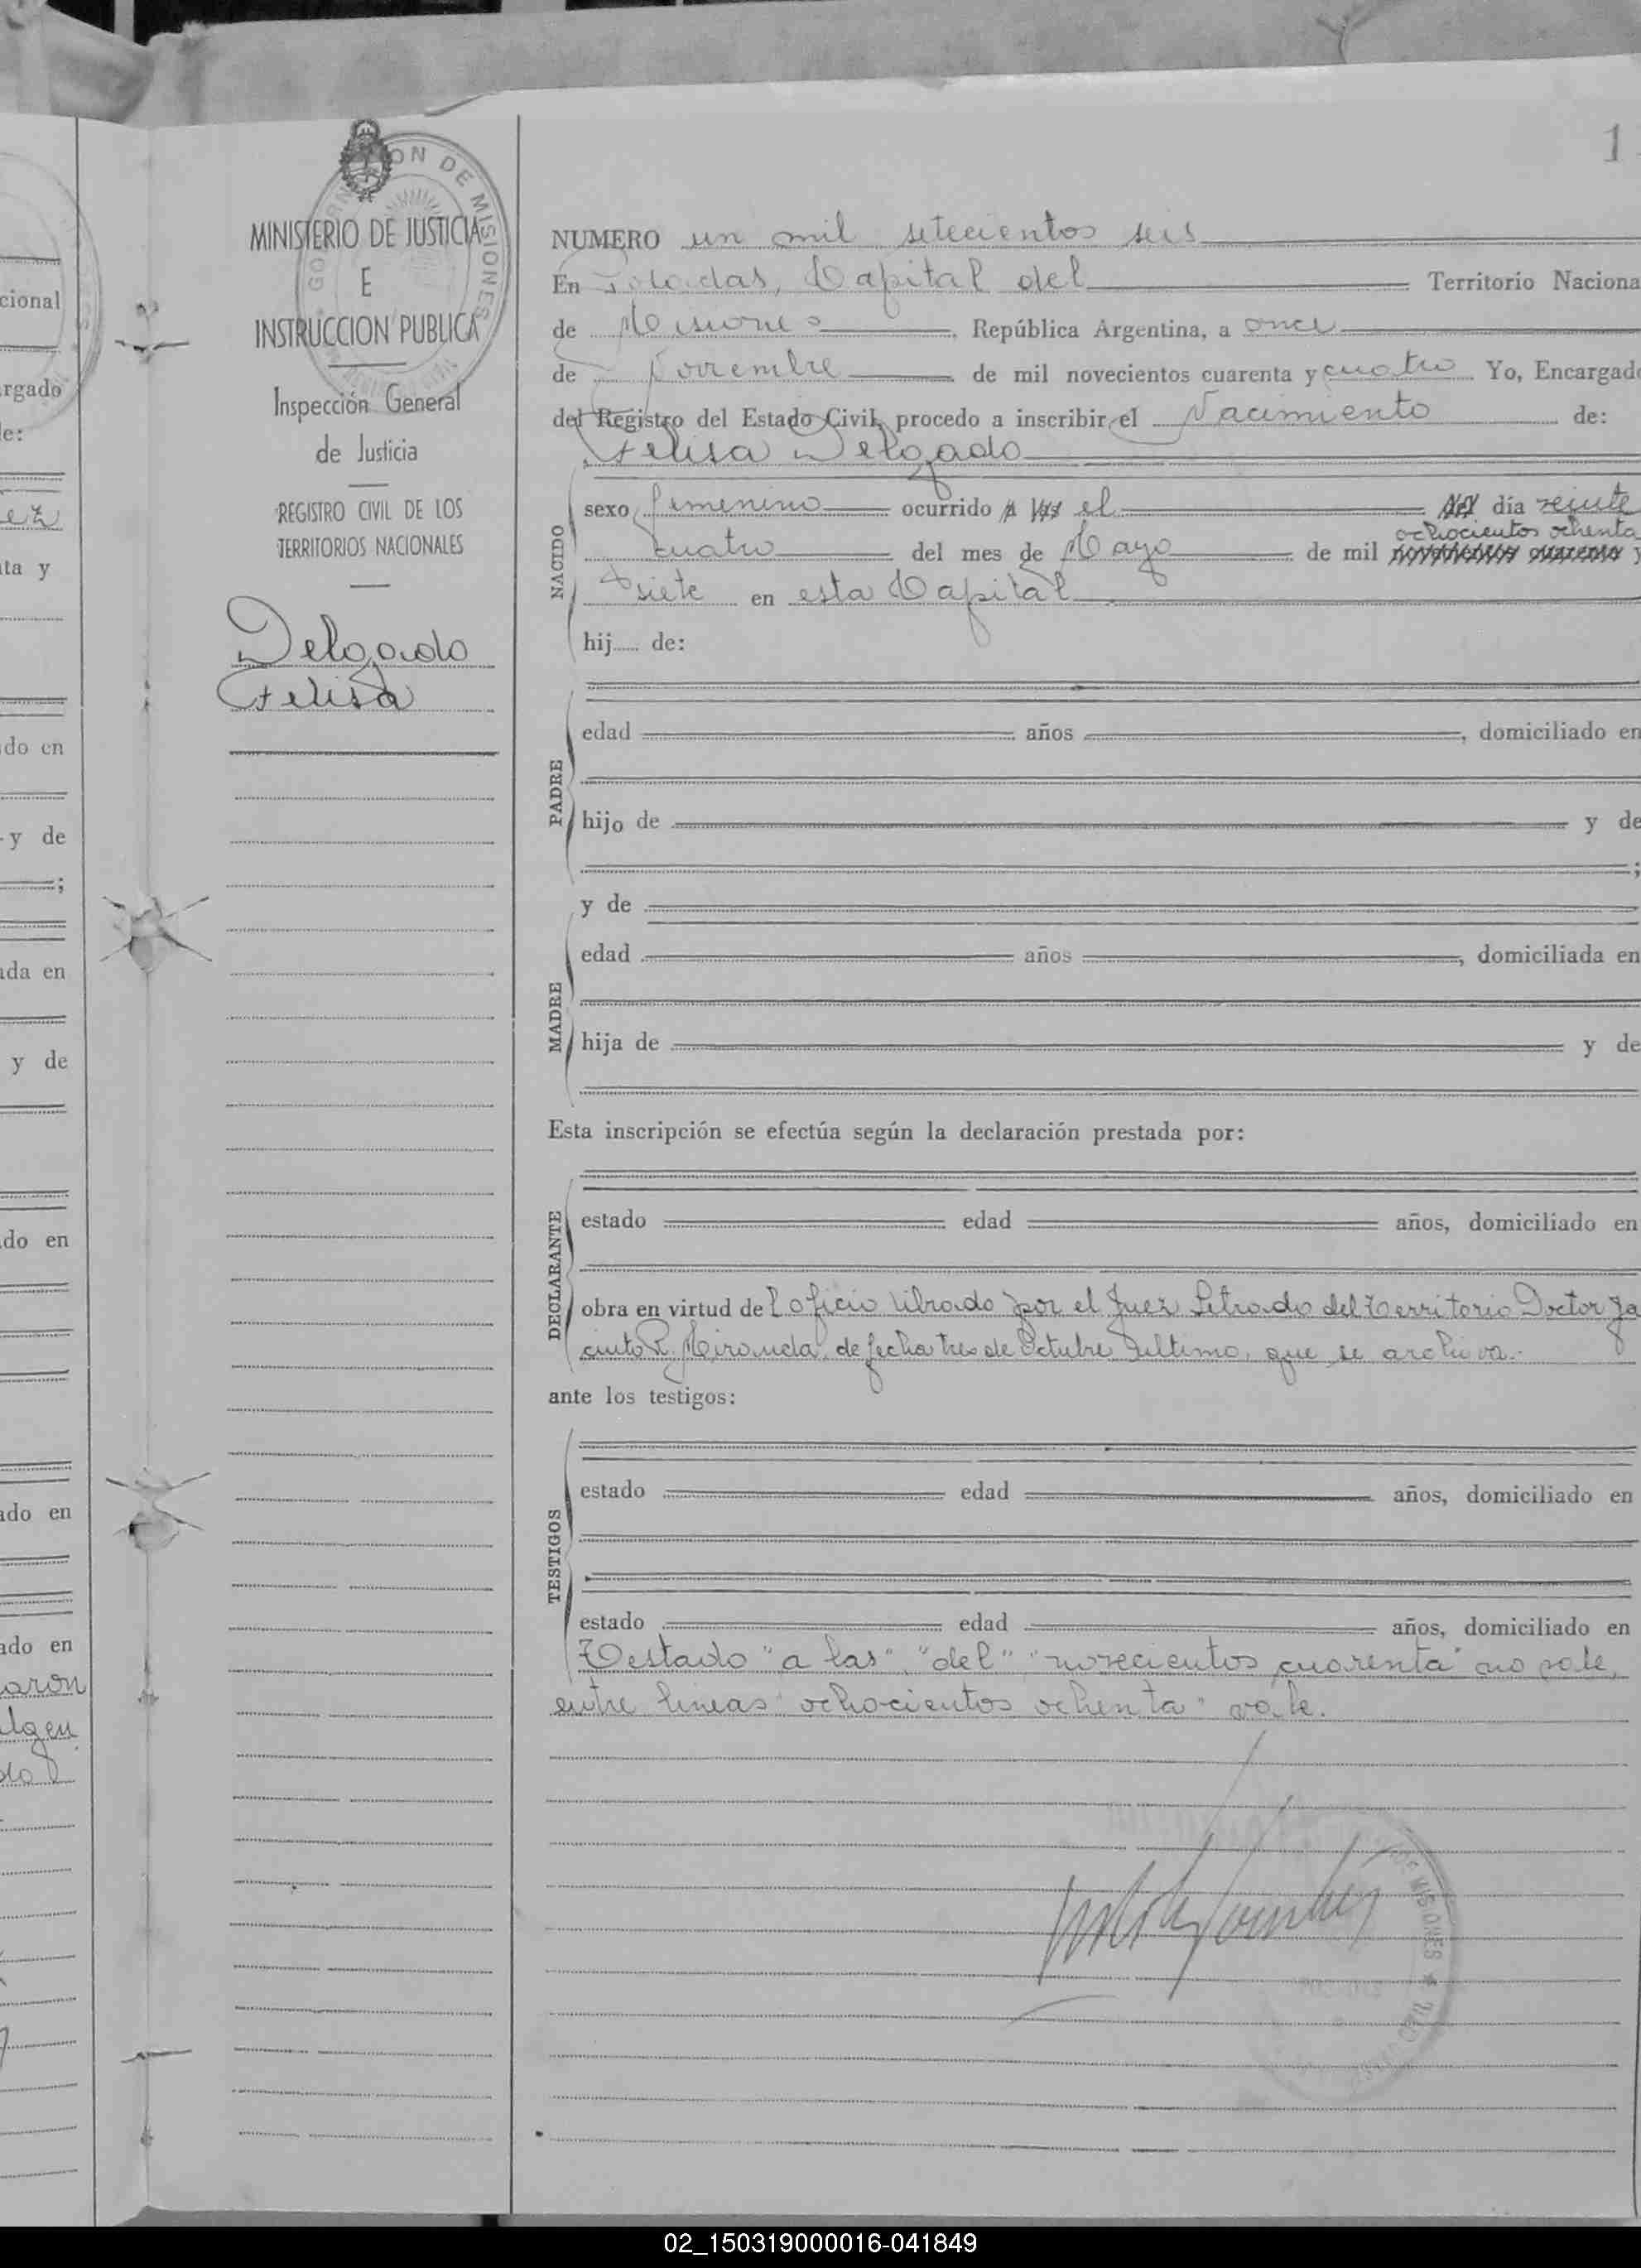 1
GOBERNACION DE MISIONES
MINISTERIO DE JUSTICIA
E
INSTRUCCION PUBLICA
Inspección General
de Justicia
REGISTRO CIVIL DE LOS
TERRITORIOS NACIONALES
Delgado
Felisa
NUMERO un mil setecientos seis
En Posadas, Capital del Territorio Naciona
de Misiones, República Argentina, a once
de Noviembre de mil novecientos cuarenta y cuatro Yo, Encargad
del Registro del Estado Civil, procedo a inscribir el Nacimiento de:
Felisa Delgado
NACIDO
sexo femenino ocurrido a las el del día veinte
ochocientos ochenta
cuatro del mes de Mayo de mil novecientos cuarenta y
siete en esta Capital
hij de:
PADRE
edad años , domiciliado en
hijo de y de
;
y de
MADRE
edad años , domiciliada en
hija de y de
Esta inscripción se efectúa según la declaración prestada por:
DECLARANTE
estado edad años, domiciliado en
obra en virtud del oficio librado por el Juez Letrado del Territorio Doctor Ja
cinto R. Miranda, de fecha tres de Octubre último, que se archiva.-
ante los testigos:
TESTIGOS
estado edad años, domiciliado en
estado edad años, domiciliado en
Testado "a las" "del" "novecientos cuarenta" no vale,
entre lineas "ochocientos ochenta" vale.
MISIONES
cional
argado
de:
ez
ta y
do en
y de
;
ada en
y de
do en
ado en
ado en
aron
lgen
do
02_150319000016-041849